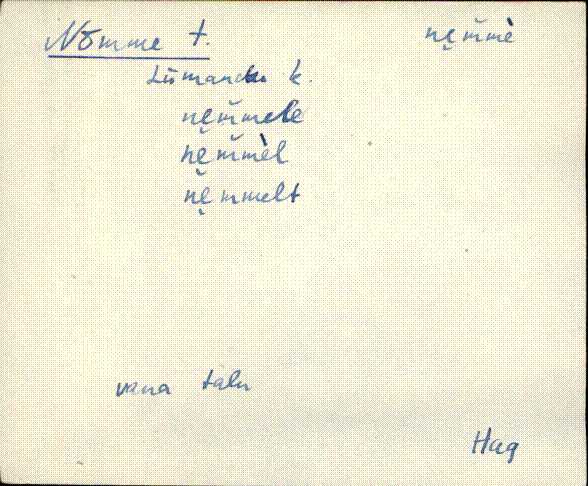 Nõmme t. ne̮m̆mè
Lümandu k.
ne̮m̆mele
ne̮m̆mèl
ne̮m̆melt
vana talu
Hag